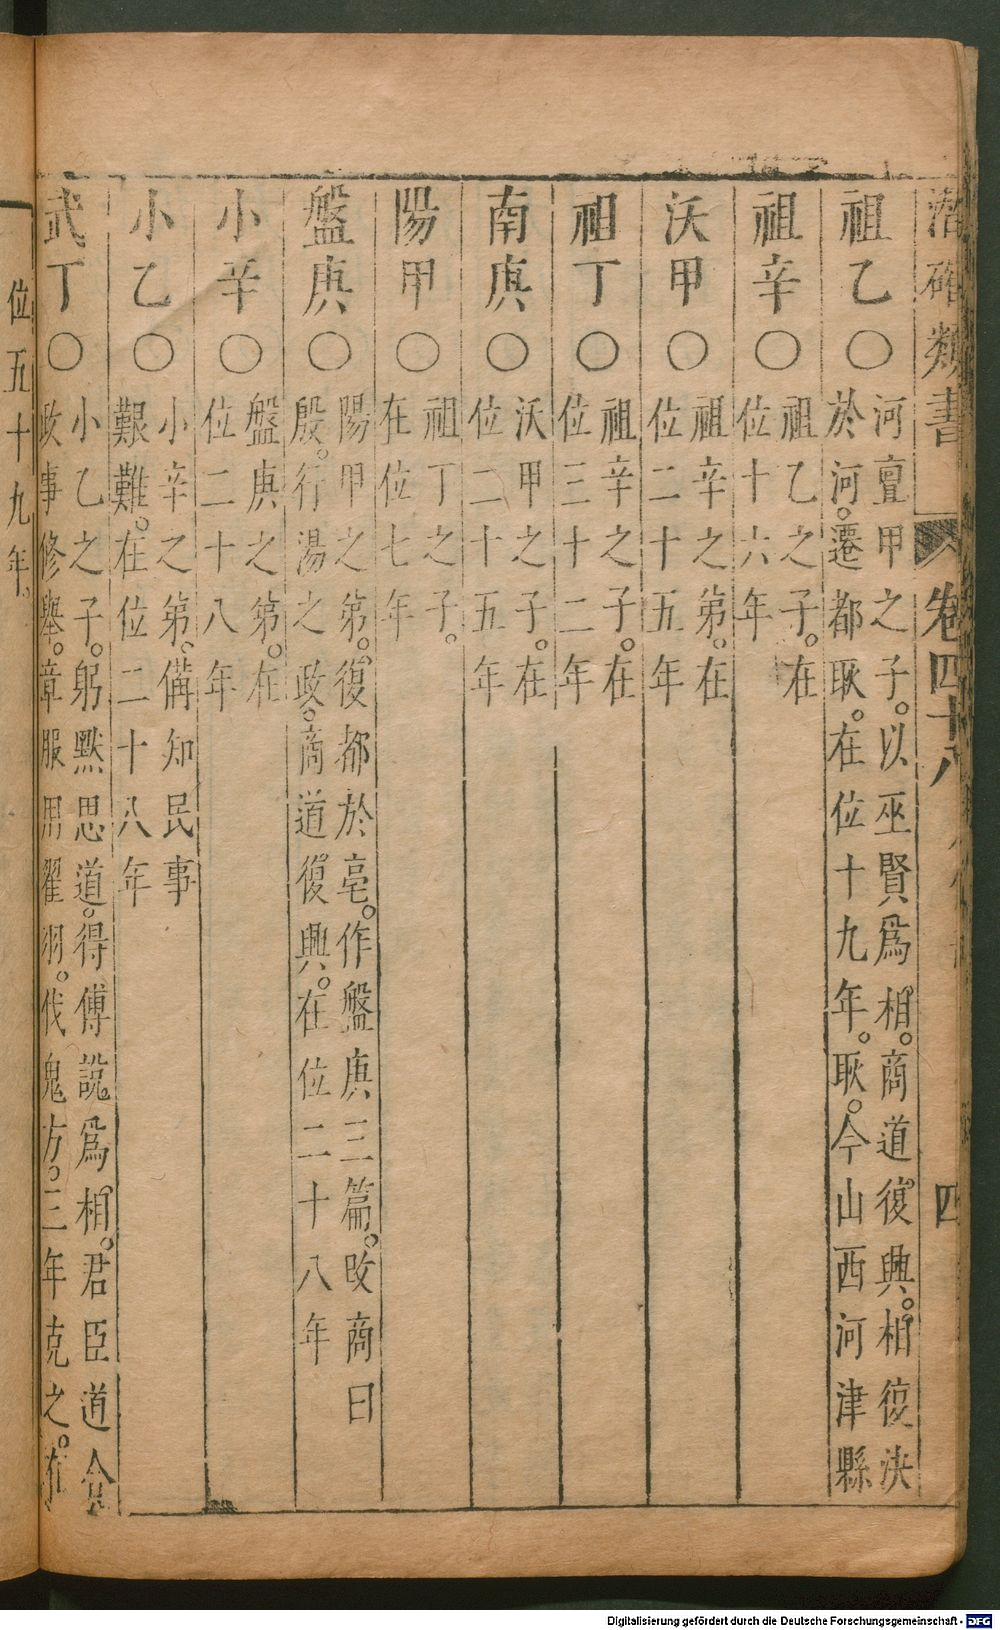 潛確類書 卷四十八 四
祖乙○河亶甲之子。以巫賢爲相。商道復興。相復決
於河。遷都耿。在位十九年。耿。今山西河津縣
祖辛○祖乙之子。在
位十六年
沃甲○祖辛之第。在
位二十五年
祖丁○祖辛之子。在
位三十二年
南庚○沃甲之子。在
位二十五年
陽甲○祖丁之子。
在位七年
盤庚○陽甲之第。復都於亳。作盤庚三篇。改商曰
殷。行湯之政。商道復興。在位二十八年
小辛○盤庚之第。在
位二十八年
小乙○小辛之第。備知民事
艱難。在位二十八年
武丁○小乙之子。躬默思道。得傅說爲相。君臣道合
政事修舉。章服用翟羽。伐鬼方。三年克之。在
位五十九年。
Digitalisierung gefördert durch die Deutsche Forschungsgemeinschaft - DFG